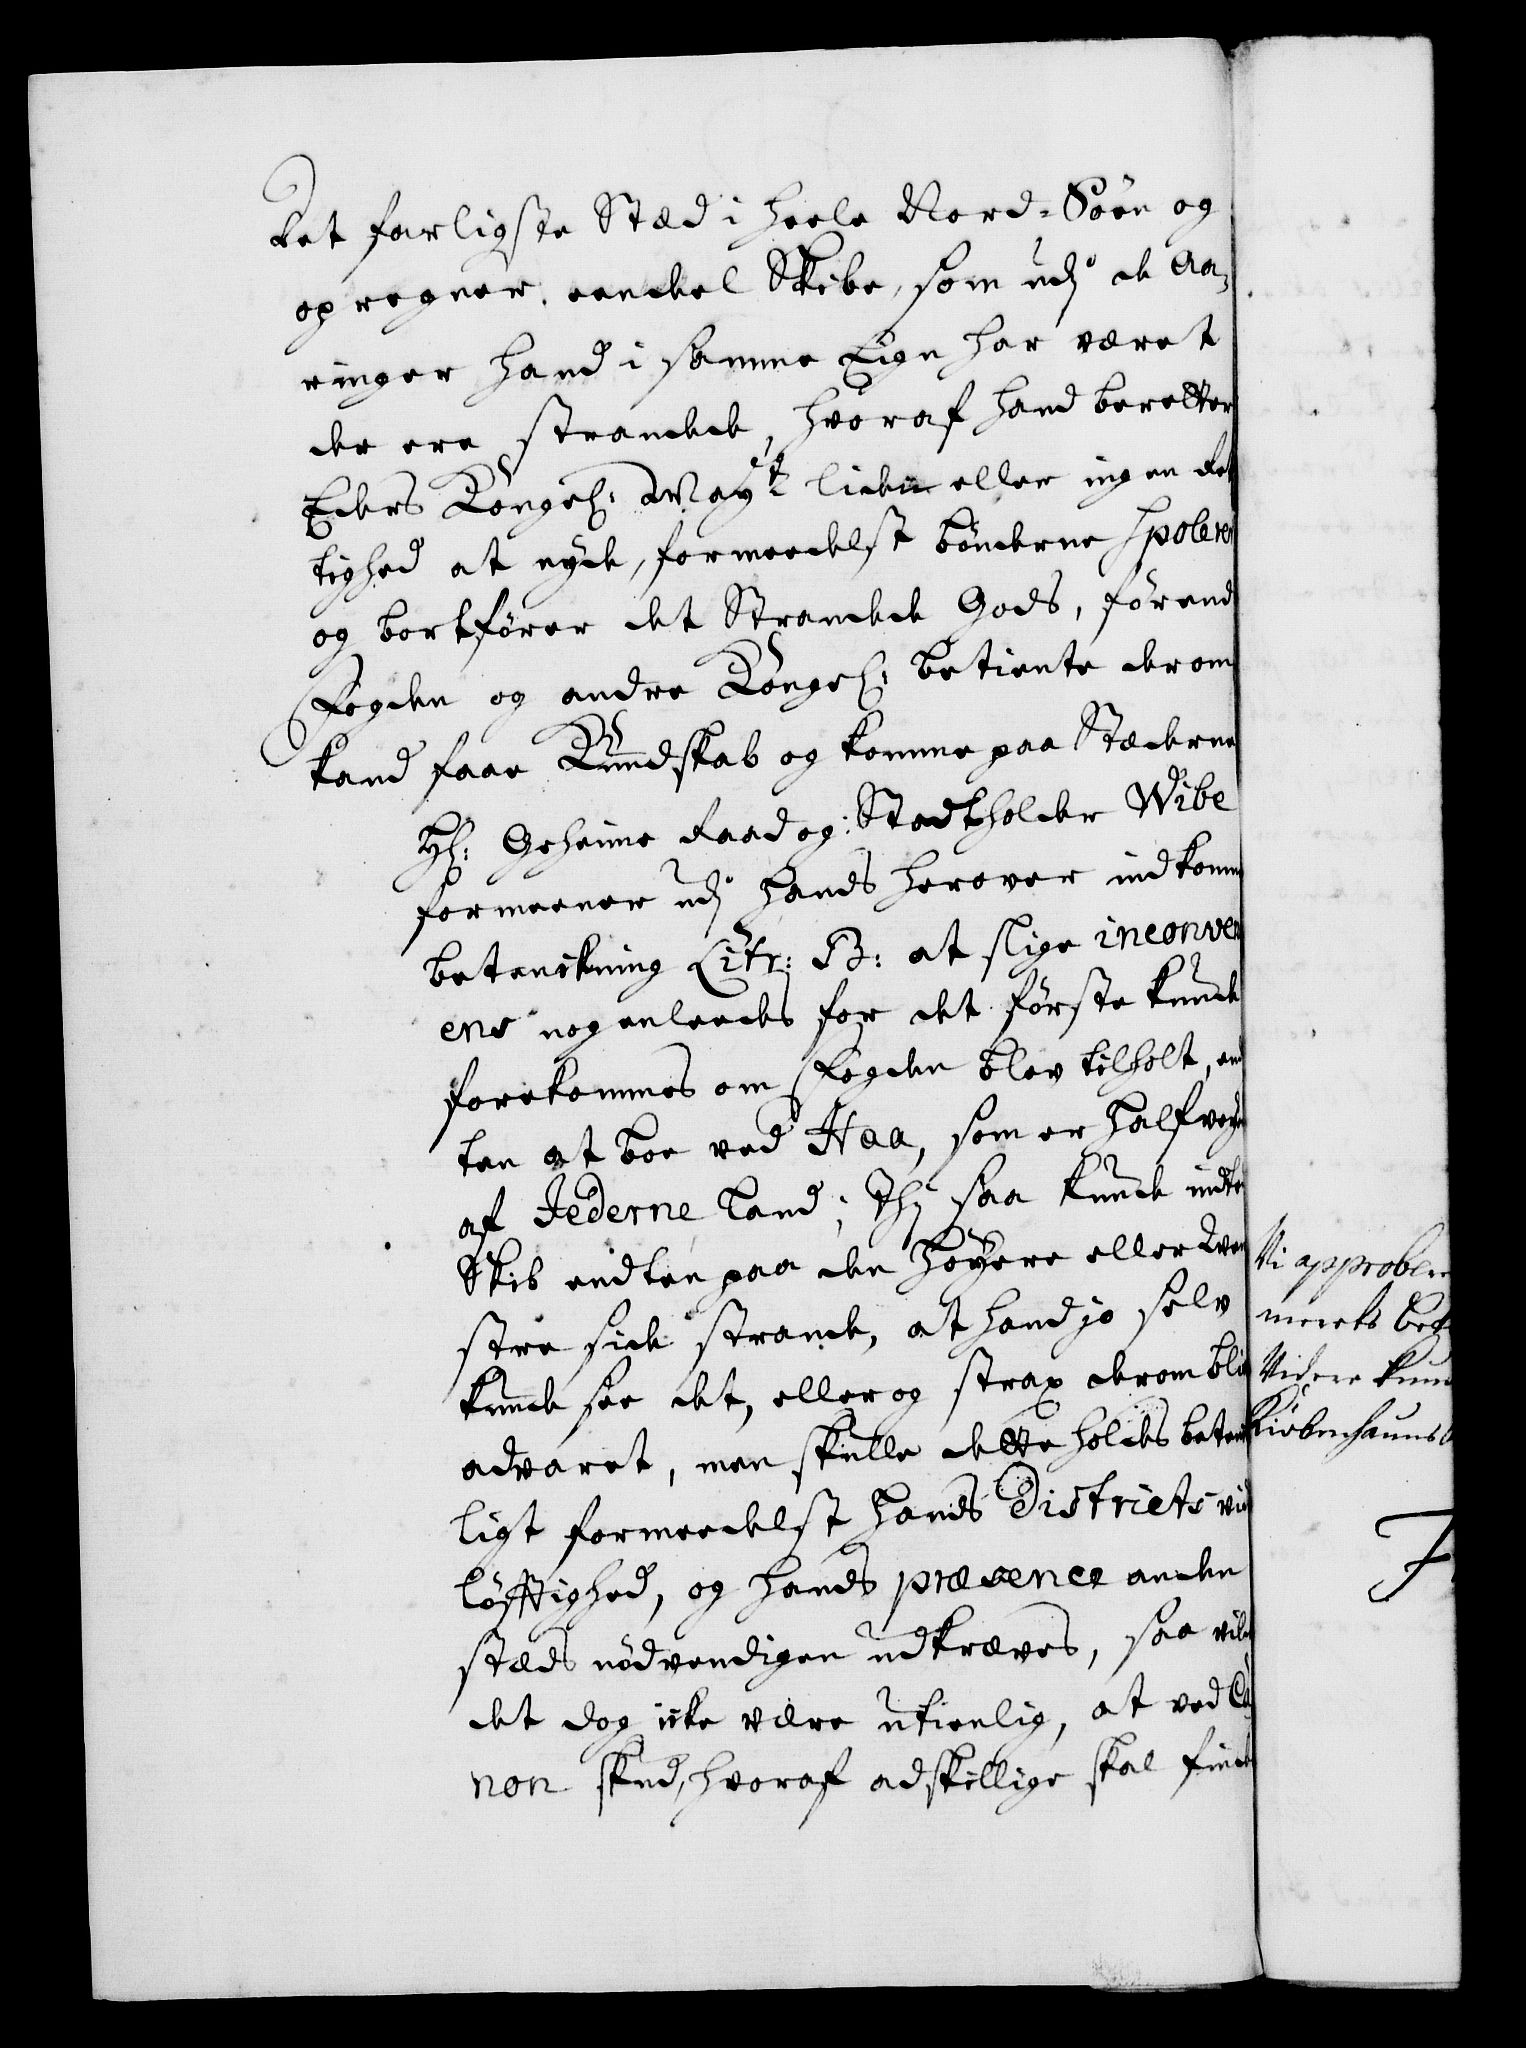 det farligste Stæd i heele Nord-Söen og
opregner, eendeel Skibe, som udj de Aa-
ringer hand i samme Eign har været
der ere strandede, hvoraf hand beretter
Eders Kongel: May:tt liden eller ingen Ret
tighed at nyde, formeedelst bönderne spolerer
og bortförer det Strandede Gods, förend
Fogden og andre Kongel: betiente derom
kand faae Kundskab og komme paa Stæderne
Hl: Geheime Raad og Stadtholder Wibe
formeener udj hands herover indkomne
betenckning Litr: B: at slige inconveni
ens nogenleedes for det förste kunde
forekommes om Fogden blev tilholt, end
ten at boe ved Haa, som er halfveyen
af Jederne Land; Thj saa kunde intet
Skib endten paa den höyere eller Ven
stre side strande, at hand jo selv
kunde see det, eller og strax derom bliv
advaret, men skulle dette holdes beten
ligt formeedelst hands Districts vid
löfftighed, og hands præsence anden
stæds nödvendigen udkræves, saa vilde
det dog icke være utienlig, at ved Ca
non skud, hvoraf adskillige skal finde
Vi approbere
merets bet
Videre kun
Kiöbenhauns
F